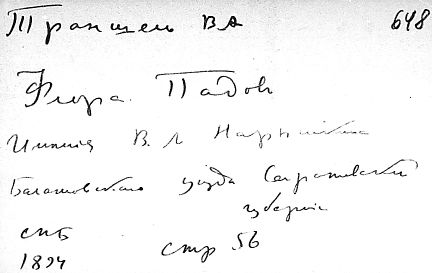 Траншель ВА 648
Флора Падов
Имения В. Л Нарышкина
Балашовского уезда Саратовской
губернии
СПБ
1894 стр 56